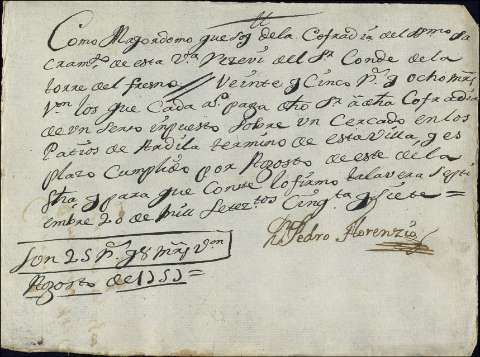 Como Mayordomo que soy dela Cofradia del Smo Sa
cramto de esta Va Rezevi del Sr Conde de la
torre del fresno // Veinte y Cinco Rs y ocho mrs
Von los que Cada aº paga dho Sr a dha Cofradia
de un Senso inpuesto sobre un Cercado en los
Patios de Ardila termino de esta Villa, y es
plazo Cumplido por Agosto de este de la
fha, y para que Conste lo firmo talavera Septi
embre 20 de mill Seteztos Cinqta y Siete =
Dn Pedro Florenzio
Son 25 Rs y 8 mrs Von
Agosto de 1757 =